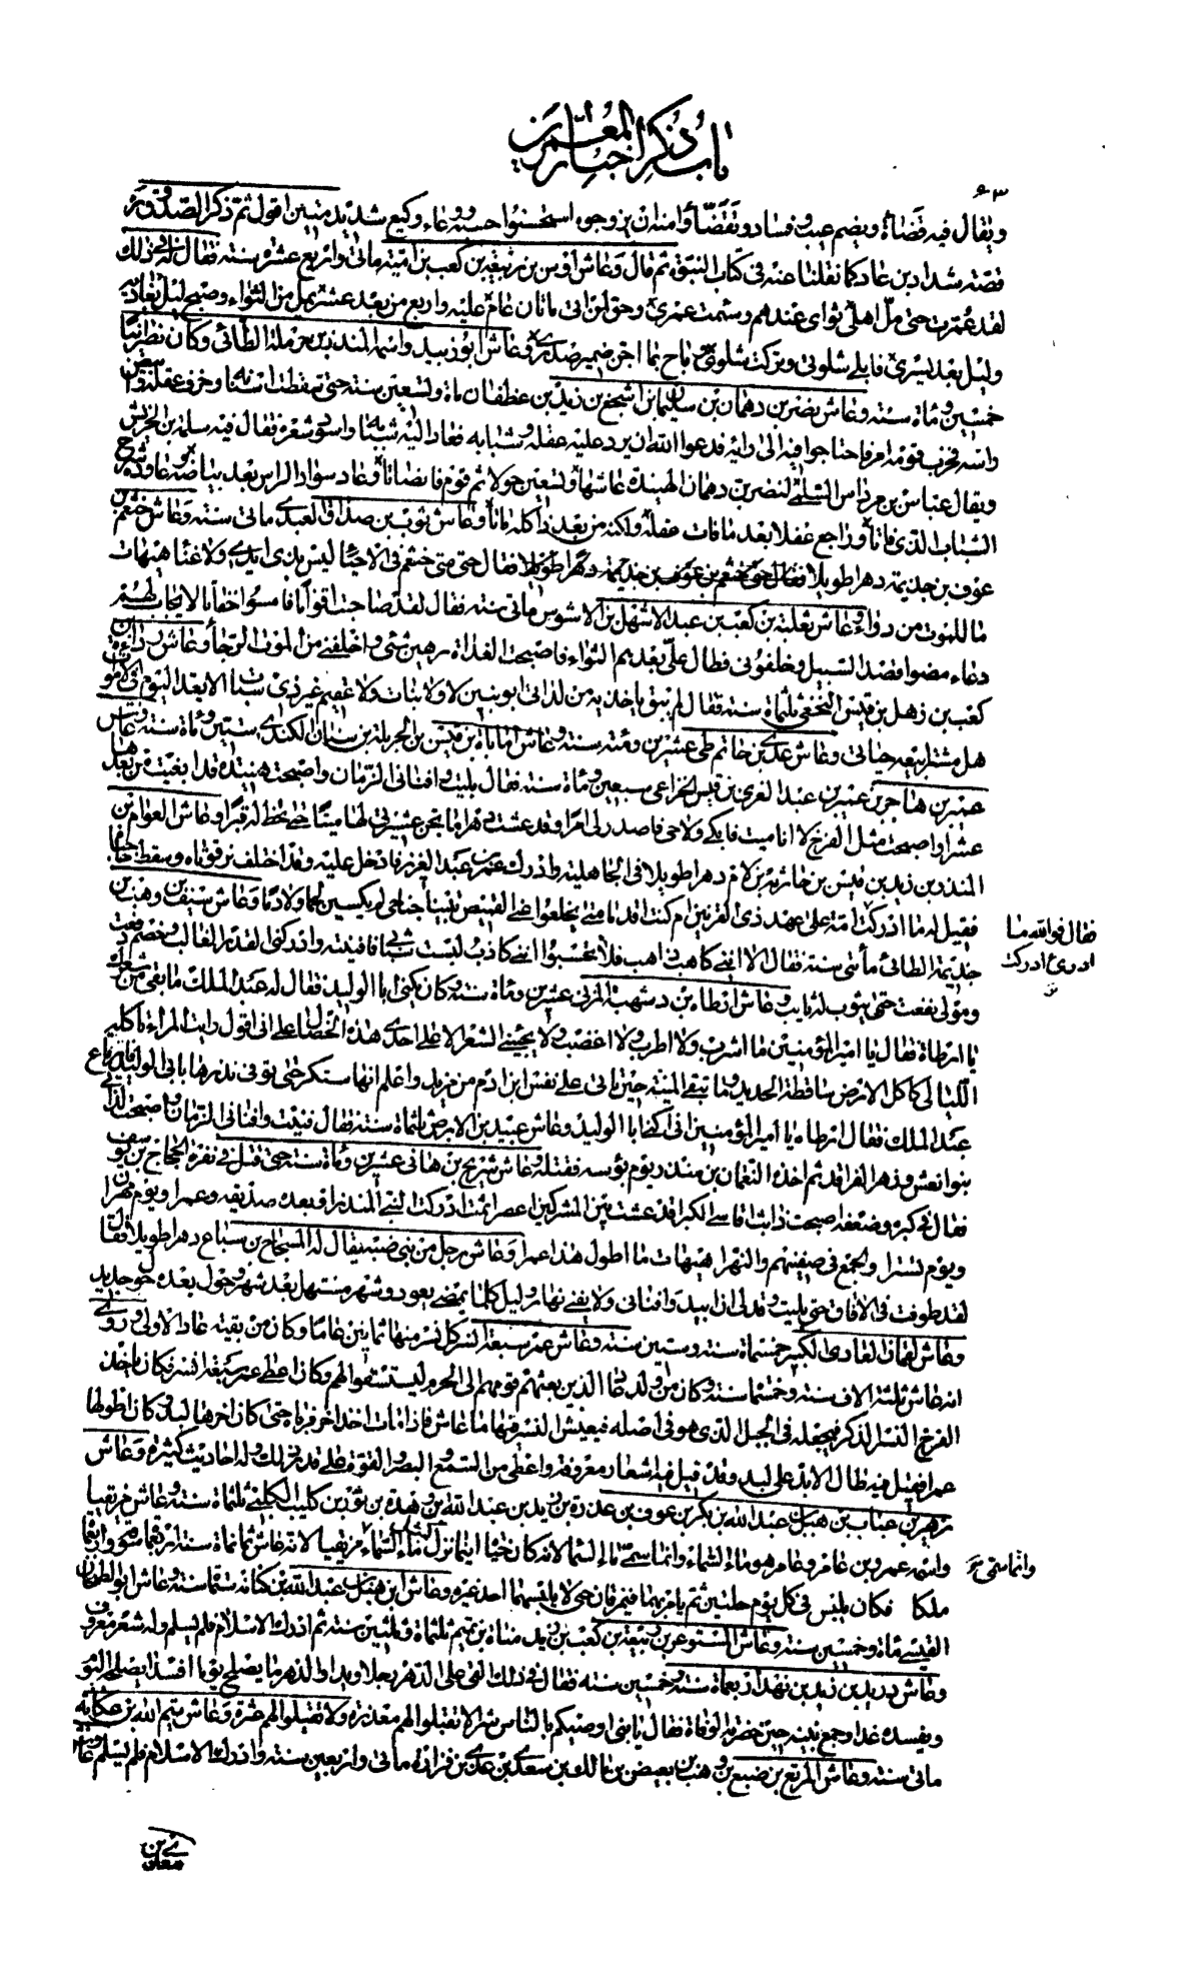 باب ذكر اخبار المعمرين
٦٣
ويقال فيه قضاة ويضم عيب وفساد وتقضّأوا منه ان يزوجوه استخسّوا حسبه وعاء وكيع شديد متين اقول ثم ذكر الصدوق ره
قصة شداد بن عاد كما نقلنا عنه في كتاب النبوة ثم قال وعاش اوس بن ربيعة بن كعب بن امية مأتي واربع عشرة سنة فقال في ذلك
لقد عمّرت حتى ملّ اهلي ثواي عندهم وسئمت عمري وحق لمن اتى مأتان عام عليه واربع من بعد عشر يمل من الثواء وصبح ليل يغاديه
وليل بعد يسري فابلى شلوتي وتركت شلوي وباح بما اجن ضمير صدري وعاش ابو زبيد واسمه المنذر بن حرملة الطائي وكان نصرانيا
خمسين ومأة سنة وعاش نضر بن دهمان بن سليمان بن اشجع بن زيد بن غطفان مأة وتسعين سنة حتى سقطت اسنانه وخرف عقله وابيض
راسه فحزب قومه امر فاحتاجوا فيه الى رأيه فدعوا الله ان يرد عليه عقله وشبابه فعاد اليه شبابه واسود شعره فقال فيه سلمة بن الخرشب
ويقال عباس بن مرداس السلمي لنضر بن دهمان الهنيدة عاشها وتسعين حولا ثم قوم فانصاتا وعاد سواد الراس بعد بياضه وعاوده شرخ
الشباب الذي فاتا وراجع عقلا بعد ما فات عقله ولكنه من بعد ذا كله ماتا وعاش ثوب بن صداق العبدي مأتي سنة وعاش خثعم بن
عوف بن جذيمة دهرا طويلا فقال حتى متى خثعم في الاحياء ليس بذي ايدي ولا غناء هيهات
ما للموت من دواء وعاش ثعلبة بن كعب بن عبد الاشهل بن الاشوس مأتي سنة فقال لقد صاحبت اقواما فامسوا خفاتا لا يجاب لهم
دعاء مضوا قصد السبيل وخلفوني فطال علي بعدهم الثواء فاصبحت الغداة رهين شئي واخلفني من الموت الرجاء وعاش رداءة بن
كعب بن ذهل بن قيس النخعي ثلثمأة سنة فقال لم يبق يا خذيه من لداتي ابو بنين لا ولا بنات ولا عقيم غير ذي سبات الا يعد اليوم في الاموات
هل مشتر ابيعه حياتي وعاش عدي بن حاتم طي عشرين ومئة سنة وعاش اماباة بن قيس بن الحرملة بن سنان الكندي ستين ومأة سنة وعاش
عمير بن هاجر بن عمير بن عبد العزى بن قيس الخزاعي سبعين ومأة سنة فقال بليت وافناني الزمان واصبحت هنيدة قد ابقيت من بعدها
عشرا واصبحت مثل الفرخ لا انا ميت فابكى ولا حي فاصدر لي امرا وقد عشت دهرا ما تجن عشيرتي لها ميتا حتى تخط له قبرا وعاش العوام بن
المنذر بن زيد بن قيس بن حارثة بن لام دهرا طويلا في الجاهلية وادرك عمر بن عبد العزيز فادخل عليه وقد اختلف ترقوتاه وسقط حاجباه
فقيل له ما ادركت امة على عهد ذي القرنين ام كنت اقدما متى يخلعوا عني القميص تبينا جناجي لم يكسين لحما ولا دما وعاش سيف بن وهب بن
فقال فوالله ما
ادري ءادركت
جذيمة الطائي مأتي سنة فقال الا انني كاهب ذاهب فلا تحسبوا انني كاذب لبست شبابي فافنيته وادركني القدر الغالب وخصم دفعت
ومولى نفعت حتى يثوب له ثايب وعاش ارطاة بن دشهبة المزني عشرين ومأة سنة وكان يكنى ابا الوليد فقال له عبد الملك ما بقي من شعرك
يا ارطاة فقال يا امير المؤمنين ما اشرب ولا اطرب ولا اغضب ولا يجيئني الشعر الا على احدى هذه الخصال على اني اقول رايت المرء تأكله
الليالي كاكل الارض ساقطة الحديد وما تبقي المنية حين تأتي على نفس ابن ادم من مزيد واعلم انها ستكر حتى توفي نذرها بابي الوليد فارتاع
عبد الملك فقال ارطاة يا امير المؤمنين اني اكنى ابا الوليد وعاش عبيد بن الابرص ثلثمأة سنة فقال فنيت وافناني الزمان واصبحت لداتي
بنوا نعش وزهر الفراقد ثم اخذه النعمان بن منذر يوم بؤسه فقتله وعاش شريح بن هاني عشرين ومأة سنة حتى قتل في نفرة الحجاج بن يوسف
فقال في كبره وضعفه اصبحت ذا بث اقاسي الكبرا قد عشت بين المشركين اعصرا ثمت ادركت النبي المنذرا وبعده صديقه وعمرا ويوم مهران
ويوم تسترا والجمع في صفينهم والنهرا هيهات ما اطول هذا عمرا وعاش رجل من بني ضبة يقال له المسجاح بن سباع دهرا طويلا فقال
لقد طوفت في الافاق حتى بليت وقد لي ان ابيد وافناني ولا يفنى نهار وليل كلما يمضي يعود وشهر مستهل بعد شهر وحول بعده حول جديد
وعاش لقمان العادي الكبير خمسمأة سنة وستين سنة وعاش عمر سبعة انسر كل نسر منها ثمانين عاما وكان من بقية عاد الاولى وروي
انه عاش ثلثة الاف سنة وخمسمأ سنة وكان من ولد عاد الذين بعثهم قومهم الى الحرم ليستسقوا لهم وكان اعطي عمر سبعة انسر فكان ياخذ
الفرخ النسر الذكر فيجعله في الجبل الذي هو في اصله فيعيش النسر فيها ما عاش فاذا مات اخذ اخر فرباه حتى كان اخرها لبد وكان اطولها
عمرا فقيل فيه طال الابد على لبد وقد قيل فيه اشعار معروفة واعطي من السمع والبصر والقوة على قدر ذلك وله احاديث كثيرة وعاش
زهير بن جناب بن هبل بن عبد الله بن بكر بن عوف بن عذرة بن زيد بن عبد الله بن وهدة بن ثور بن كليب الكلبي ثلثمأة سنة وعاش مزيقيا
واسمه عمرو بن عامر وعامر هو ماء السماء وانما سمي ماء السماء لانه كان حيا اينما نزل كمثل ماء السماء مزيقيا لانه عاش ثمانمأة سنة اربعمأة سوقة واربعمأة
وانما سمي
ملكا فكان يلبس في كل يوم حلتين ثم يامر بهما فيمزقان حتى لا يلبسهما احد غيره وعاش ابن هبل بن عبد الله بن كنانة ستمأة سنة وعاش ابو الطمحان
القيسي مأة وخمسين سنة وعاش المستوعر بن ربيعة بن كعب بن زيد مناة بن تميم ثلثمأة وثلثين سنة ثم ادرك الاسلام فلم يسلم وله شعر معروف
وعاش دريد بن زيد بن نهد اربعمأة سنة وخمسين سنة فقال في ذلك القى علي الدهر رجلا ويدا والدهر ما يصلح يوما افسدا يصلحه اليوم
ويفسده غدا وجمع بنيه حين حضرته الوفاة فقال يا بني اوصيكم بالناس شرا لا تقبلوا لهم معذرة ولا تقيلوا لهم عثرة وعاش تيم الله بن عكابة
مأتي سنة وعاش الربيع بن ضبع بن وهب بن بعيض بن مالك بن سعد بن عدي بن فزارة مأتي واربعين سنة وادرك الاسلام فلم يسلم وعاش
معدي بن